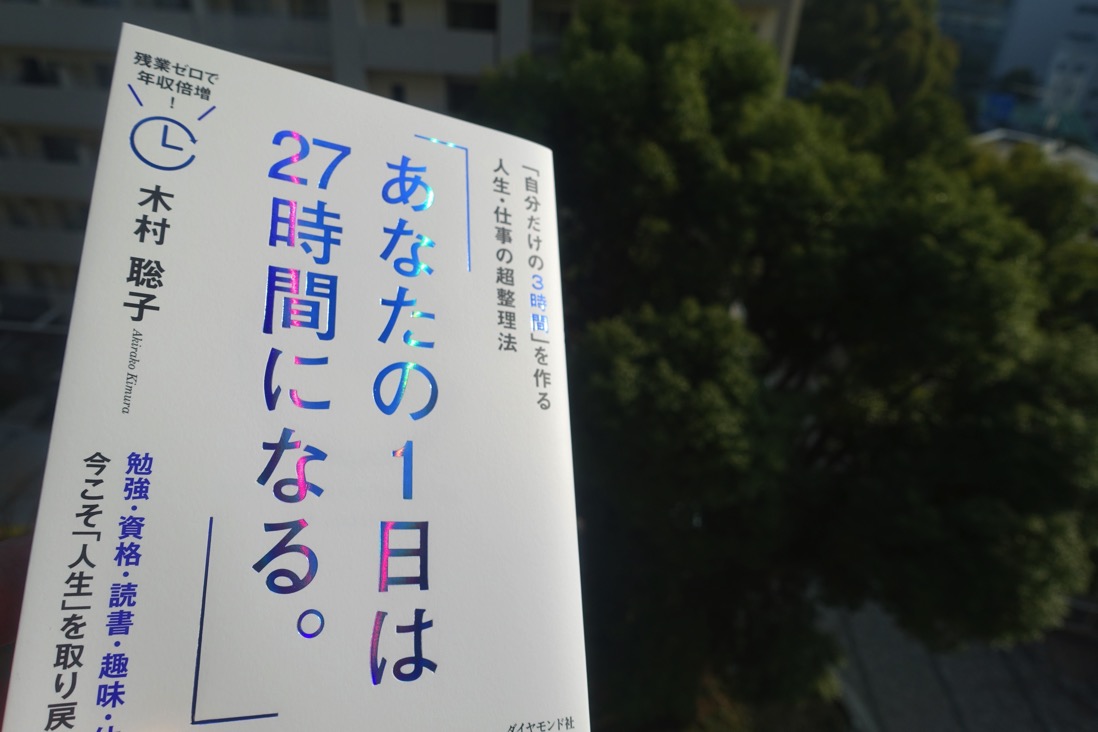 「自分だけの3時間」を作る
人生・仕事の超整理法
「あなたの1日は
27時間になる。」
残業ゼロで
年収倍増
!
木村 聡子
Akirako Kimura
勉強・資格・読書・趣味・
今こそ「人生」を取り戻
ダイヤモンド社